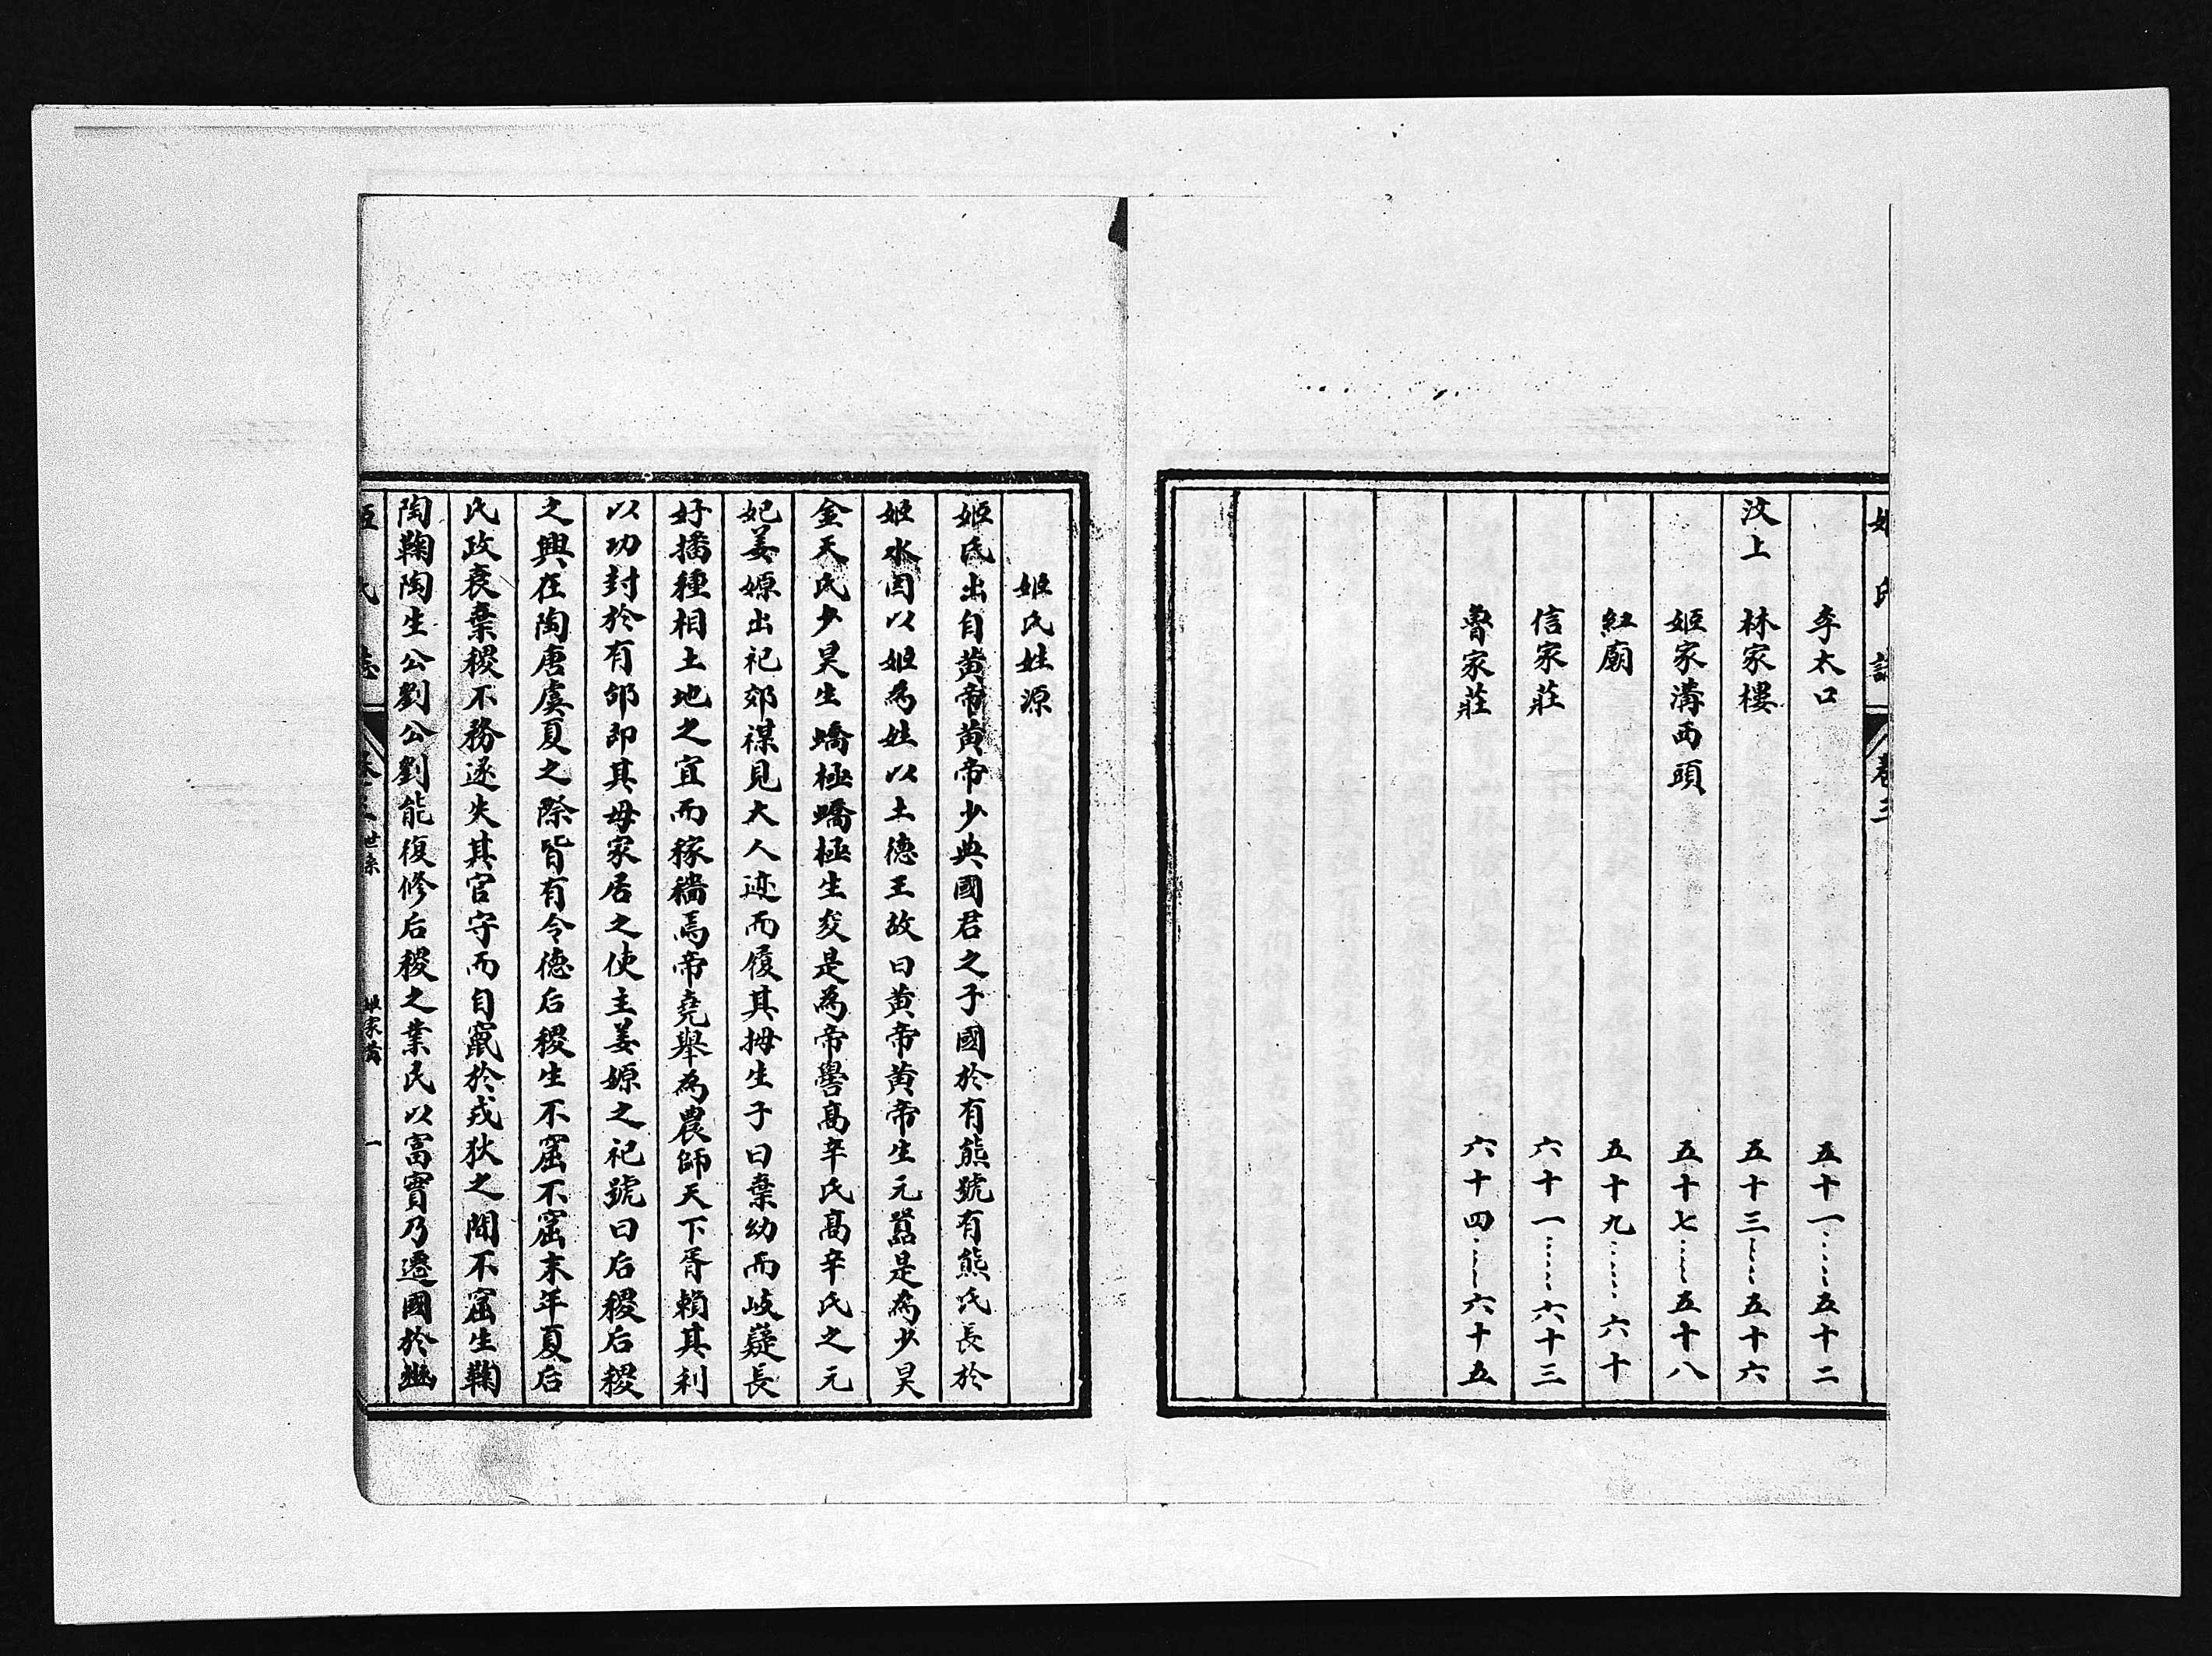 姬氏 卷三
李太口 五十一……五十二
汶上 林家樓 五十三……五十六
姬家溝西頭 五十七……五十八
紅廟 五十九……六十
信家莊 六十一……六十三
魯家莊 六十四……六十五
姬氏姓源
姬氏出自黄帝黄帝少典國君之子國於有熊號有熊氏長於
姬水因以姬為姓以土德王故曰黄帝黄帝生元囂是為少昊
金天氏少昊生蟜極蟜極生夋是為帝嚳高辛氏高辛氏之元
妃姜嫄出祀郊禖見大人迹而履其拇生子曰棄幼而岐嶷長
好播種相土地之宜而稼穡焉帝堯舉為農師天下胥賴其利
以功封於有邰即其母家居之使主姜嫄之祀號曰后稷后稷
之興在陶唐虞夏之際皆有令德后稷生不窋不窋末年夏后
氏政衰棄稷不務遂失其官守而自竄於戎狄之間不窋生鞠
陶鞠陶生公劉公劉能復修后稷之業民以富實乃遷國於豳
氏 姬家溝 一